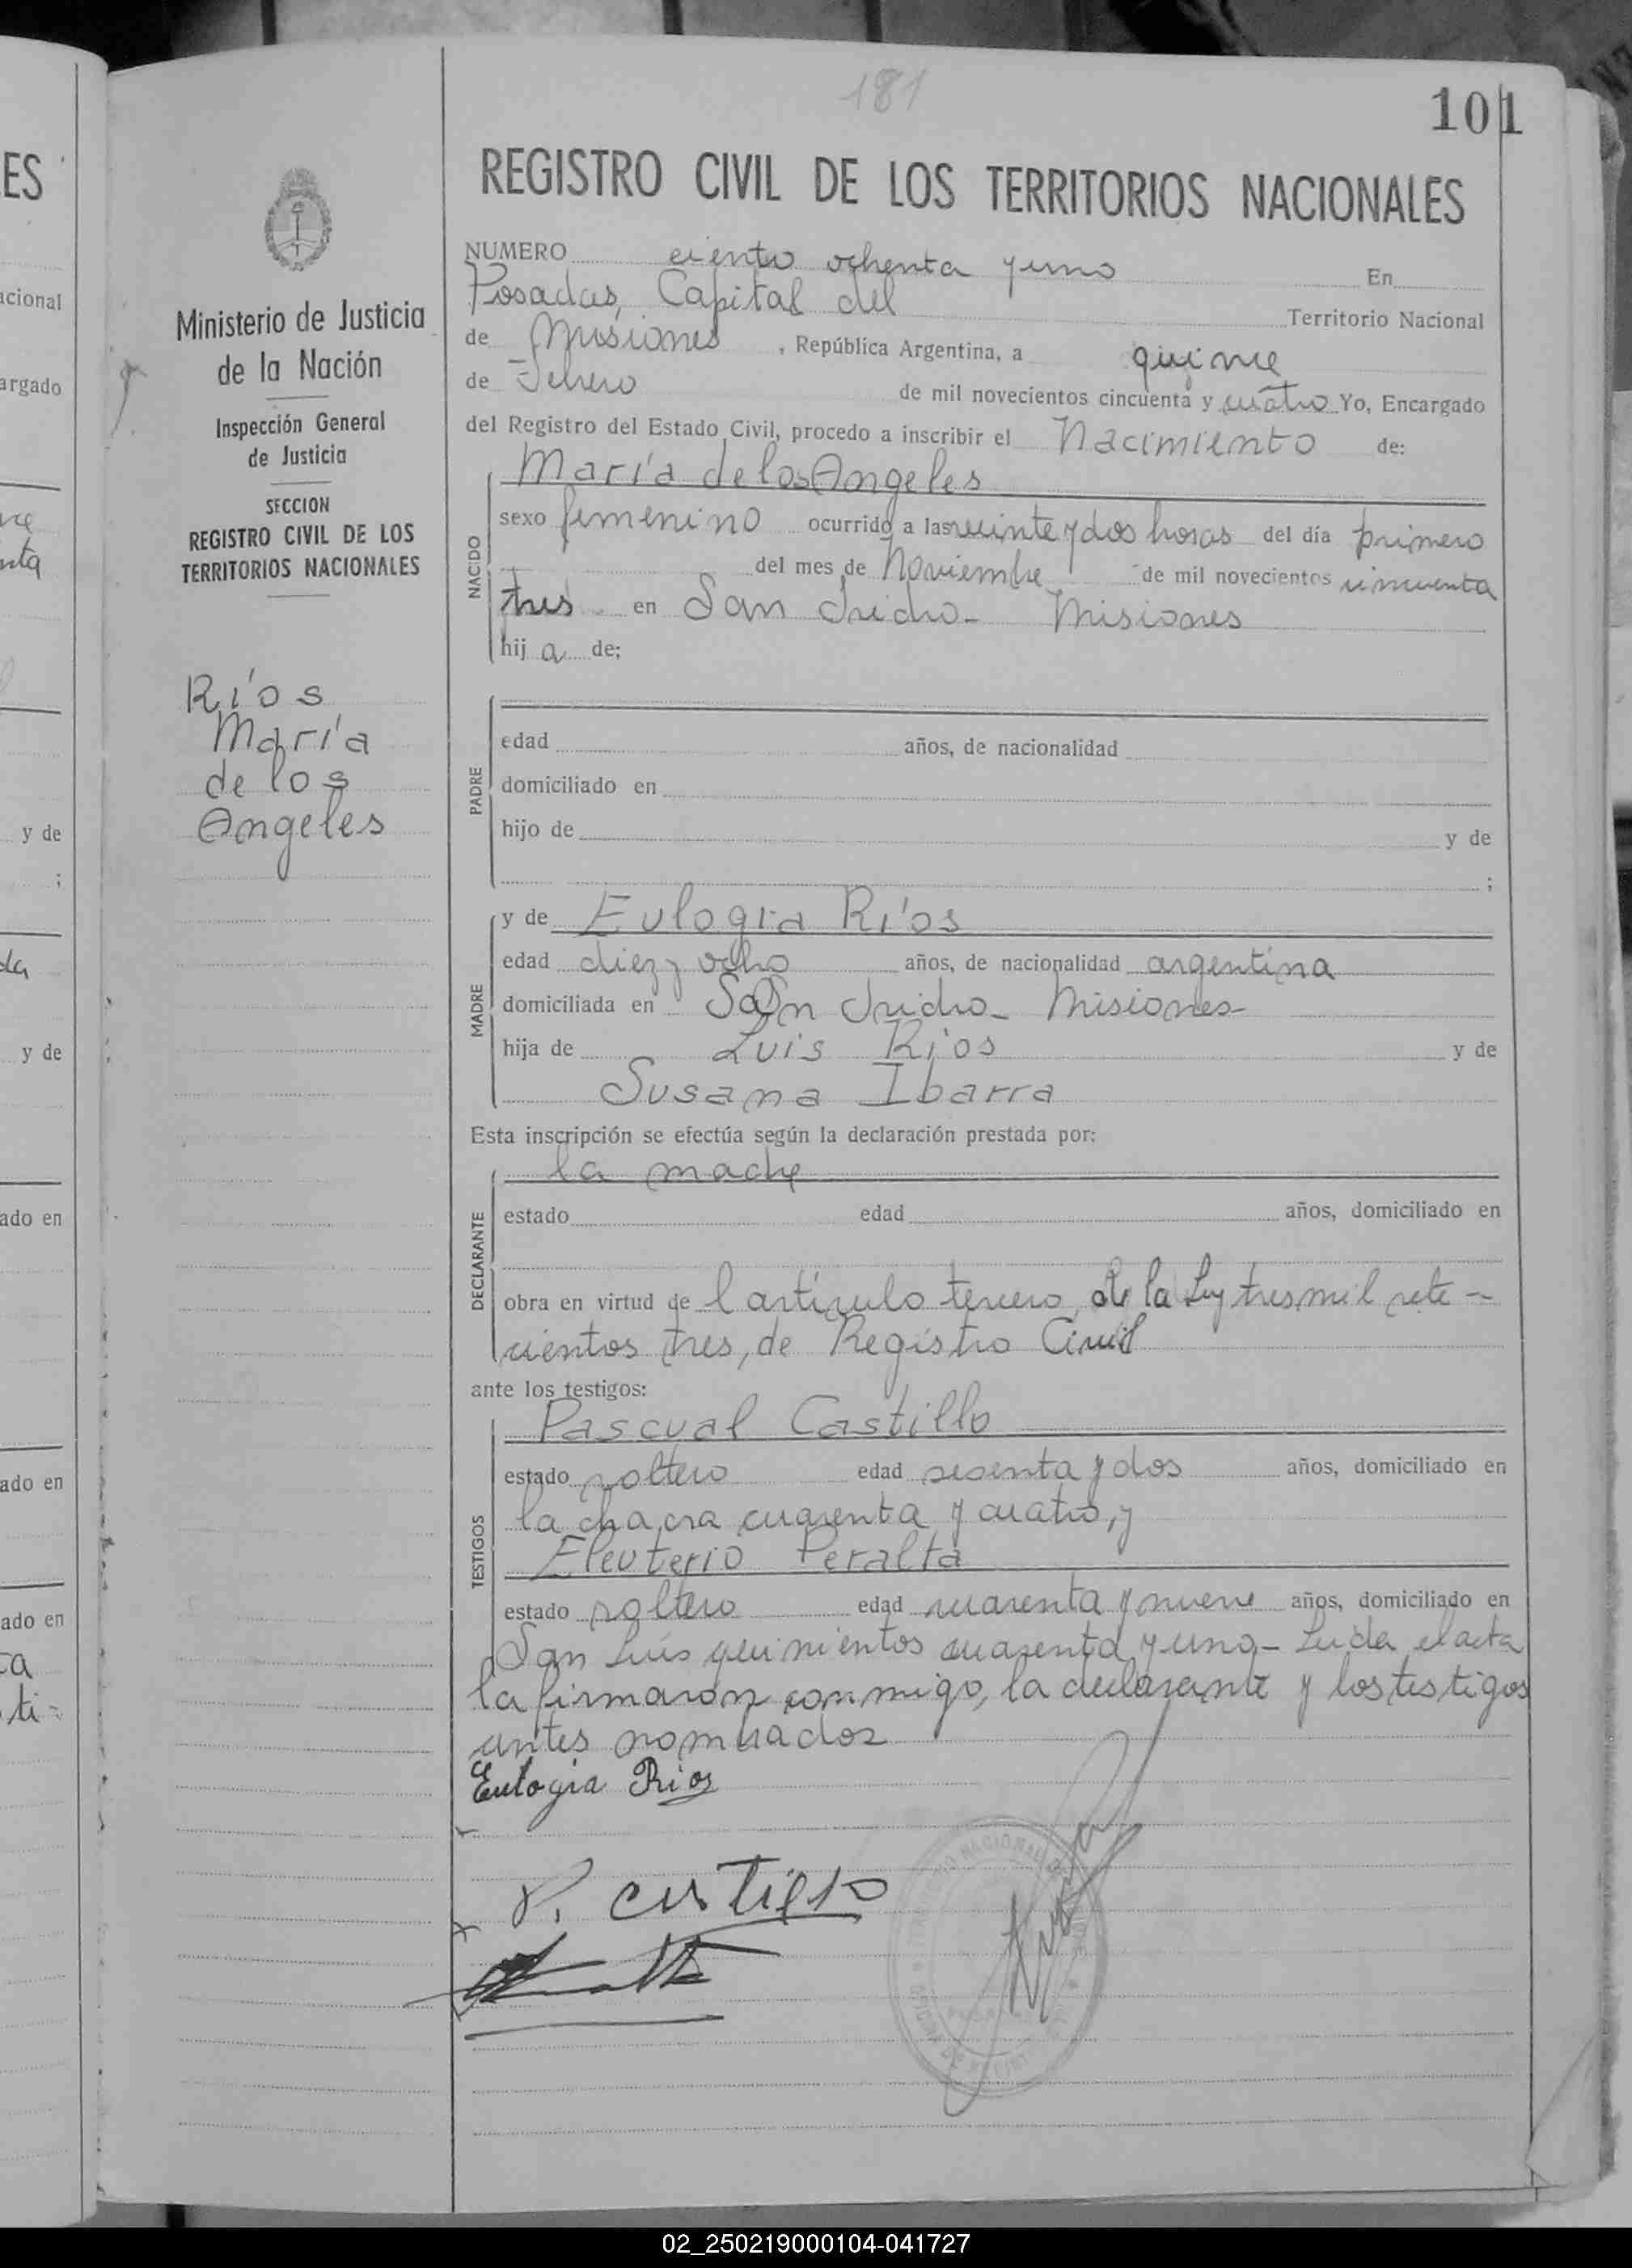 181
101
REGISTRO CIVIL DE LOS TERRITORIOS NACIONALES
Ministerio de Justicia
de la Nación
Inspección General
de Justicia
SECCION
REGISTRO CIVIL DE LOS
TERRITORIOS NACIONALES
Ríos
María
de los
Angeles
NUMERO ciento ochenta y uno En
Posadas, Capital del Territorio Nacional
de Misiones, República Argentina, a quince
de Febrero de mil novecientos cincuenta y cuatro Yo, Encargado
del Registro del Estado Civil, procedo a inscribir el Nacimiento de:
NACIDO
María de los Angeles
sexo femenino ocurrido a las veinte y dos horas del día primero
del mes de Noviembre de mil novecientos cincuenta
tres en San Isidro- Misiones
hij a de;
PADRE
edad años, de nacionalidad
domiciliado en
hijo de y de
;
MADRE
y de Eulogia Ríos
edad diez y ocho años, de nacionalidad argentina
domiciliada en San Isidro- Misiones-
hija de Luis Ríos y de
Susana Ibarra
Esta inscripción se efectúa según la declaración prestada por:
DECLARANTE
la madre
estado edad años, domiciliado en
obra en virtud de l artículo tercero, de la Ley tres mil sete-
cientos tres, de Registro Civil
ante los testigos:
TESTIGOS
Pascual Castillo
estado soltero edad sesenta y dos años, domiciliado en
la chacra cuarenta y cuatro, y
Eleuterio Peralta
estado soltero edad cuarenta y nueve años, domiciliado en
San Luis quinientos cuarenta y uno- Leida el acta
la firmaron conmigo, la declarante y los testigos
antes nombrados
Eulogia Rios
P. castillo
ES
acional
argado
y de
;
da
y de
ado en
ado en
ado en
ta
ti=
02_250219000104-041727